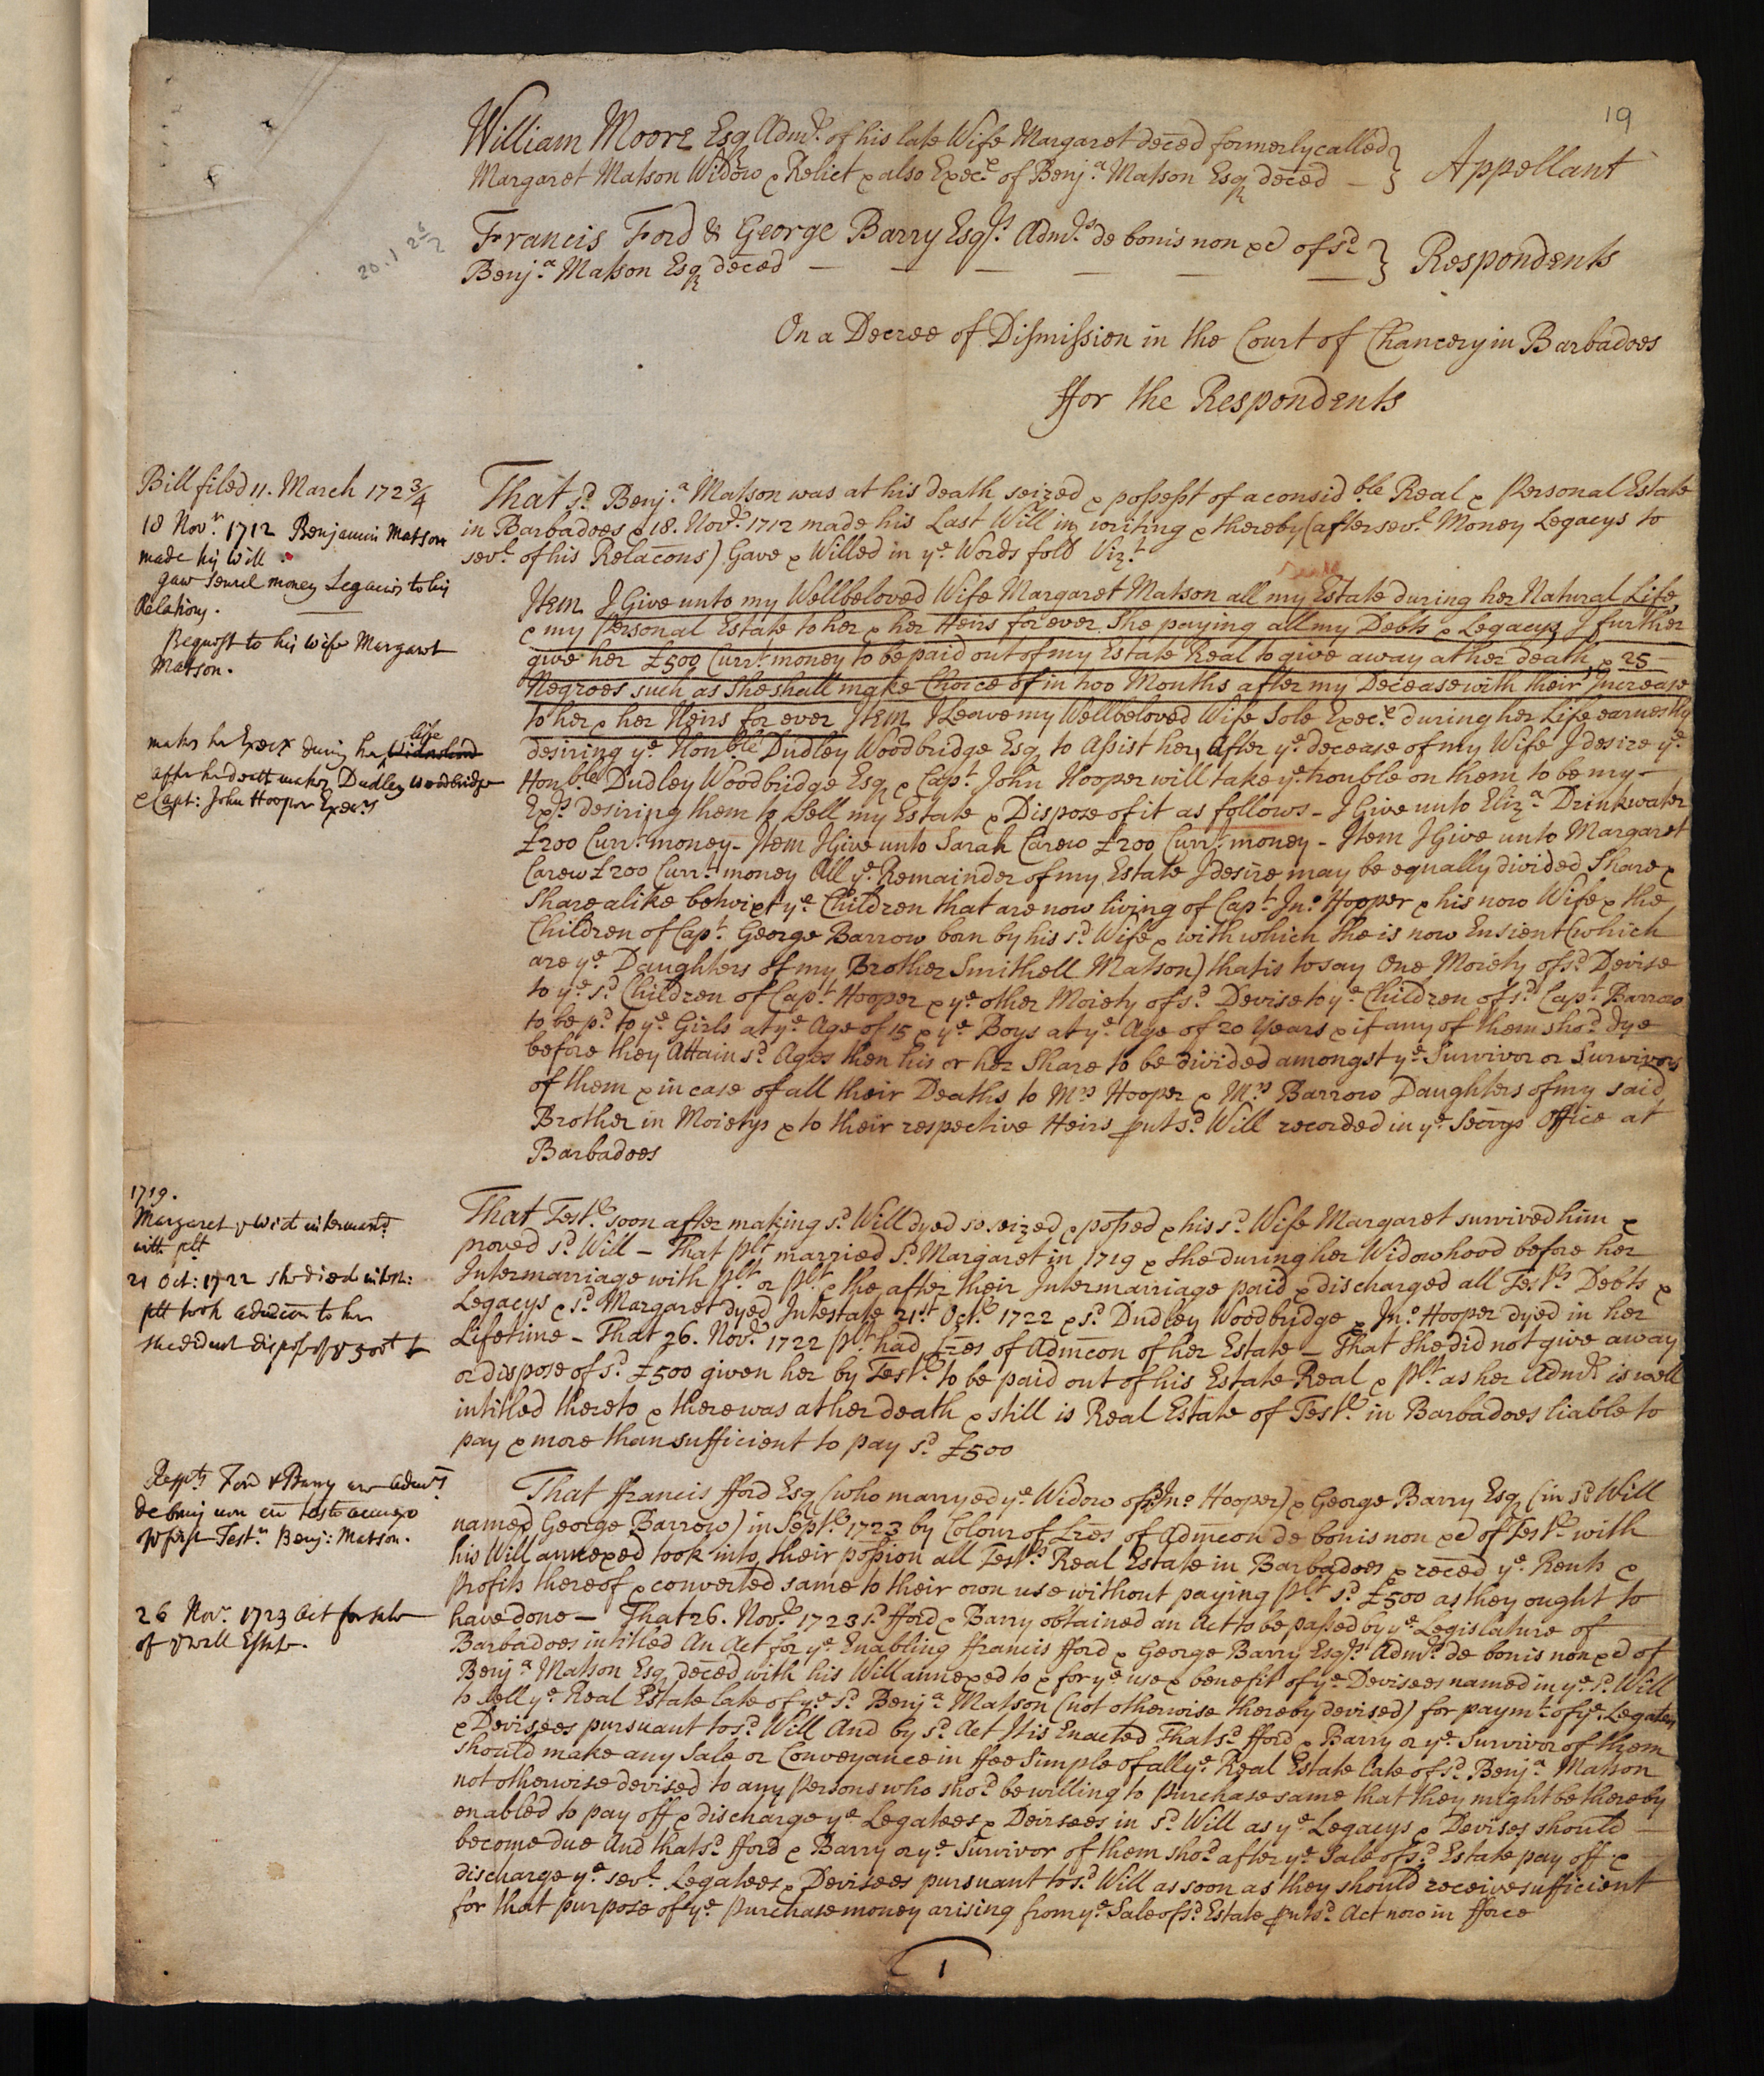 19
William Moore Esq Adm.r of his late Wife Margaret deced formerly called
Margaret Matson Widow & Relict & also Exec.x of Benj.a Matson Esq deced —
Appellant
20.1
Francis Ford & George Barry Esq.rs Adm.rs de bonis non &c of s.d
Benj.a Matson Esq deced — — — — — —
Respondents
On a Decree of Dismission in the Court of Chancery in Barbadoes
ffor the Respondents
Bill filed 11. March 172 3/4
18 Nov.r 1712 Benjamin Matson
made his Will
gave severel money Legacies to his
Relations.
Bequest to his wife Margaret
Matson.
makes her Execx during her Widowhood life
after her death makes Dudley Woodbridge
& Capt: John Hooper Exec.rs
That s.d Benj.a Matson was at his death seized & possest of a consid.ble Real & Personal Estate
in Barbadoes & 18. Nov.r 1712 made his Last Will in writing & thereby (after sev.l Money Legacys to
sev.l of his Relacons) Gave & Willed in y.e Words foll.g Viz.t
Item I Give unto my Wellbeloved Wife Margaret Matson all my Estate during her Natural Life
& my Personal Estate to her & her Heirs for ever She paying all my Debts & Legacys I further
give her £500 Curr.t money to be paid out of my Estate Real to give away at her death & 25
Negroes such as She shall make Choice of in two Months after my Decease with their Increase
to her & her Heirs for ever Item I Leave my Wellbeloved Wife Sole Exec.x during her Life earnestly
desiring y.e Hon.ble Dudley Woodbridge Esq to Assist her, After y.e decease of my Wife I desire y.e
Hon.ble Dudley Woodbridge Esq & Cap.t John Hooper will take y.e trouble on them to be my —
Ex.rs desiring them to Sell my Estate & Dispose of it as follows - I Give unto Eliz.a Drinkwater
£200 Curr.t money - Item I Give unto Sarah Carew £200 Curr.t money - Item I Give unto Margaret
Carew £200 Curr.t money All y.e Remainder of my Estate I desire may be equally divided Share &
Share alike betwixt y.e Children that are now living of Cap.t Jn.o Hooper & his now Wife & the
Children of Cap.t George Barrow born by his s.d Wife & with which She is now Ensient (which
are y.e Daughters of my Brother Smithell Matson) that is to say One Moiety of s.d Devise
to y.e s.d Children of Cap.t Hooper & y.e other Moiety of s.d Devise to y.e Children of s.d Cap.t Barrow
to be p.d to y.e Girls at y.e Age of 15 & y.e Boys at y.e Age of 20 Years & if any of them sho.d dye
before they Attain s.d Ages then his or her Share to be divided amongst y.e Survivor or Survivors
of them & in case of all their Deaths to M.rs Hooper & M.rs Barrow Daughters of my said
Brother in Moietys & to their respective Heirs put s.d Will recorded in y.e Secrys Office at
Barbadoes
1719.
Margaret y.e Wid intermar.d
with plt
21 Oct: 1722 she died intest:
plt took admcon to her
she did not dispose of y.e 500£
That Test.r soon after making s.d Will dyed so seized & possed & his s.d Wife Margaret survived him &
proved s.d Will — That Pl.t married s.d Margaret in 1719 & She during her Widowhood before her
Intermarriage with Pl.t or Pl.t & she after their Intermarriage paid & discharged all Test.rs Debts &
Legacys & s.d Margaret dyed Intestate 21.st Oct.r 1722 & s.d Dudley Woodbridge & Jn.o Hooper dyed in her
Lifetime — That 26. Nov.r 1722 Pl.t had Lres of Admcon of her Estate — That She did not give away
or dispose of s.d £500 given her by Test.r to be paid out of his Estate Real & Pl.t as her Adm.r is well
intitled thereto & there was at her death & still is Real Estate of Test.r in Barbadoes liable to
pay & more than sufficient to pay s.d £500
Resp.ts Ford & Barry are adm.rs
de bonis non cu testo annexo
of y.e first Test.r Benj: Matson.
26 Nov.r 1723 Act for sale
of y.e real Estate.
That ffrancis fford Esq (who marryed y.e Widow of s.d Jn.o Hooper) & George Barry Esq (in s.d Will
named George Barrow) in Sept.r 1723 by Colour of Lres of Admcon de bonis non &c of Test.r with
his Will annexed took into their possion all Test.rs Real Estate in Barbadoes & reced y.e Rents &
Profits thereof & converted same to their own use without paying Pl.t s.d £500 as they ought to
have done — That 26. Nov.r 1723 s.d fford & Barry obtained an Act to be passed by y.e Legislature of
Barbadoes intitled An Act for y.e Enabling ffrancis fford & George Barry Esq.rs Adm.rs de bonis non &c of
Benj.a Matson Esq deced with his Will annexed to & for y.e use & benefit of y.e Devisees named in y.e s.d Will
to Sell y.e Real Estate late of y.e s.d Benj.a Matson (not otherwise thereby devised) for paym.t of y.e Legatees
& Devisees pursuant to s.d Will And by s.d Act It is Enacted That s.d fford & Barry or y.e Survivor of them
should make any Sale or Conveyance in ffee Simple of all y.e Real Estate late of s.d Benj.a Matson
not otherwise devised to any Persons who sho.d be willing to Purchase same that they might be thereby
enabled to pay off & discharge y.e Legatees & Deivsees in s.d Will as y.e Legacys & Devises should —
become due And that s.d fford & Barry or y.e Survivor of them sho.d after y.e Sale of s.d Estate pay off &
discharge y.e sev.l Legatees & Devisees pursuant to s.d Will as soon as they should receive sufficient
for that purpose of y.e Purchase money arising from y.e Sale of s.d Estate put s.d Act now in fforce
1